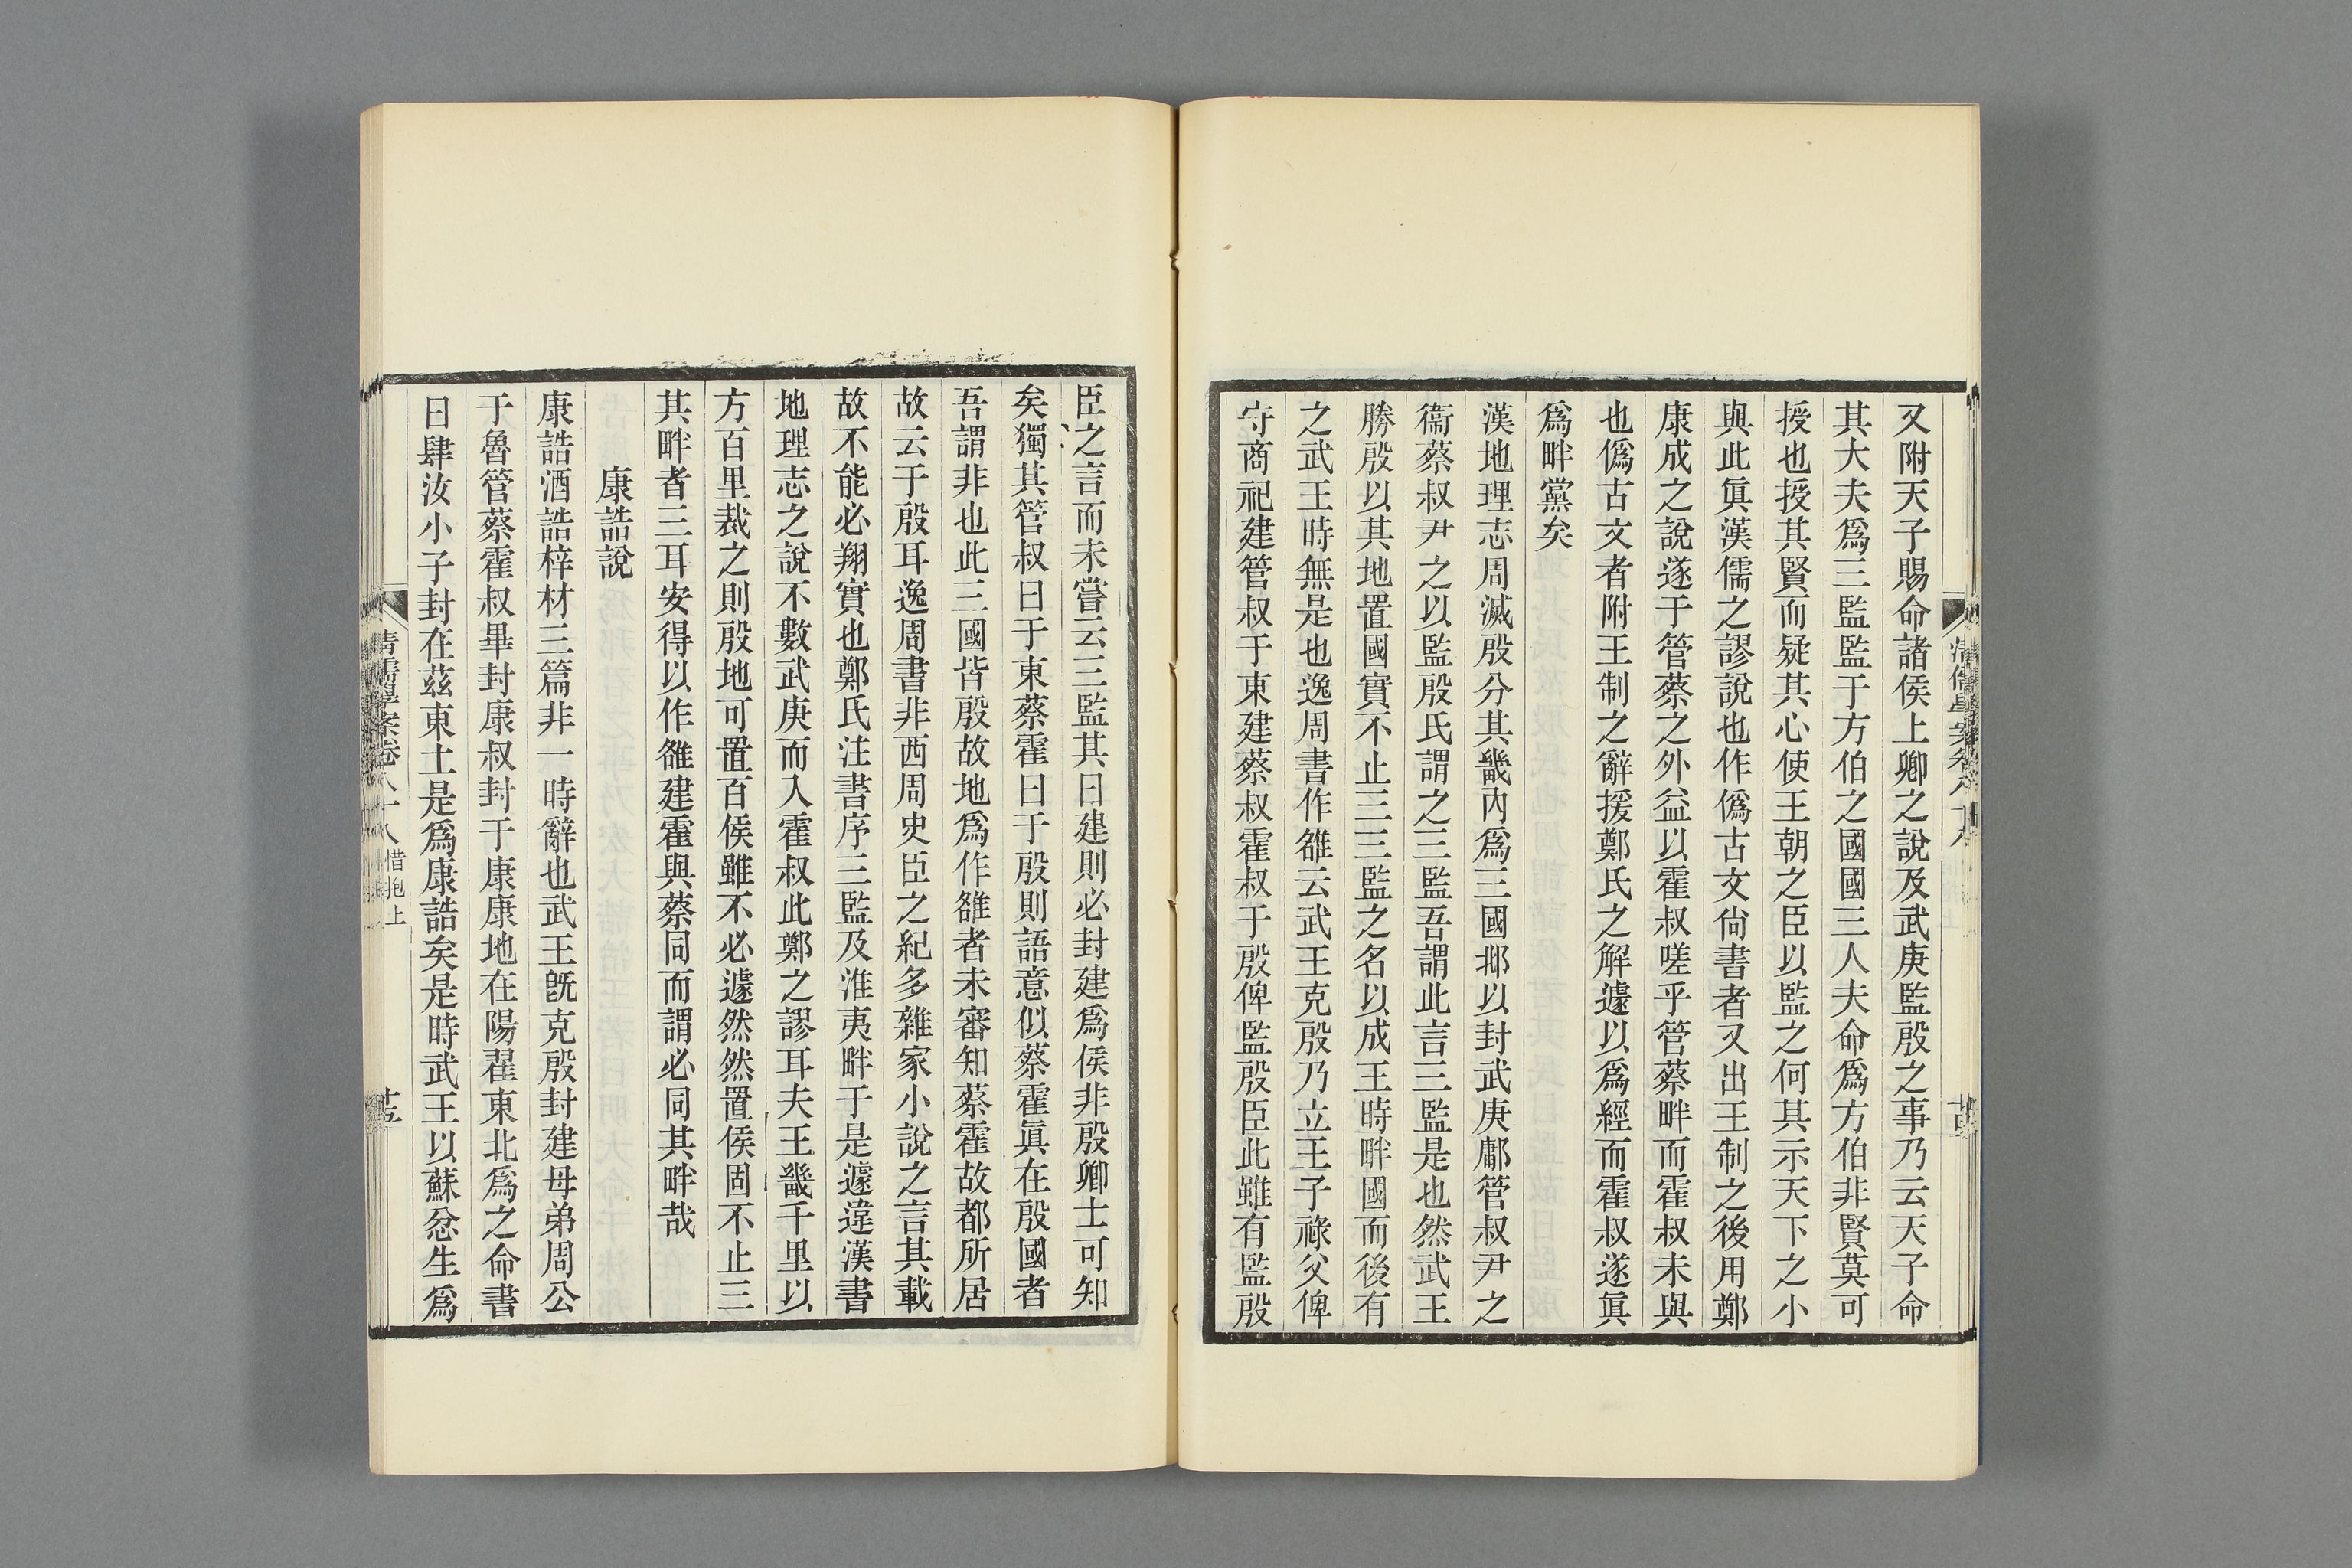 又附天子賜命諸侯上卿之說及武庚監殷之事乃云天子命
其大夫爲三監監于方伯之國國三人夫命爲方伯非賢莫可
授也授其賢而疑其心使王朝之臣以監之何其示天下之小
與此眞漢儒之謬說也作僞古文尙書者又出王制之後用鄭
康成之說遂于管蔡之外益以霍叔嗟乎管蔡畔而霍叔未與
也僞古文者附王制之辭援鄭氏之解遽以爲經而霍叔遂眞
爲畔黨矣
漢地理志周滅殷分其畿內爲三國邶以封武庚鄘管叔尹之
衞蔡叔尹之以監殷氏謂之三監吾謂此言三監是也然武王
勝殷以其地置國實不止三三監之名以成王時畔國而後有
之武王時無是也逸周書作雒云武王克殷乃立王子祿父俾
守商祀建管叔于東建蔡叔霍叔于殷俾監殷臣此雖有監殷
臣之言而未嘗云三監其曰建則必封建爲侯非殷卿士可知
矣獨其管叔曰于東蔡霍曰于殷則語意似蔡霍眞在殷國者
吾謂非也此三國皆殷故地爲作雒者未審知蔡霍故都所居
故云于殷耳逸周書非西周史臣之紀多雜家小說之言其載
故不能必翔實也鄭氏注書序三監及淮夷畔于是遽違漢書
地理志之說不數武庚而入霍叔此鄭之謬耳夫王畿千里以
方百里裁之則殷地可置百侯雖不必遽然然置侯固不止三
其畔者三耳安得以作雒建霍與蔡同而謂必同其畔哉
康誥說
康誥酒誥梓材三篇非一時辭也武王旣克殷封建母弟周公
于魯管蔡霍叔畢封康叔封于康康地在陽翟東北爲之命書
曰肆汝小子封在茲東土是爲康誥矣是時武王以蘇忿生爲
清儒學案卷八十八 惜抱上
廿五